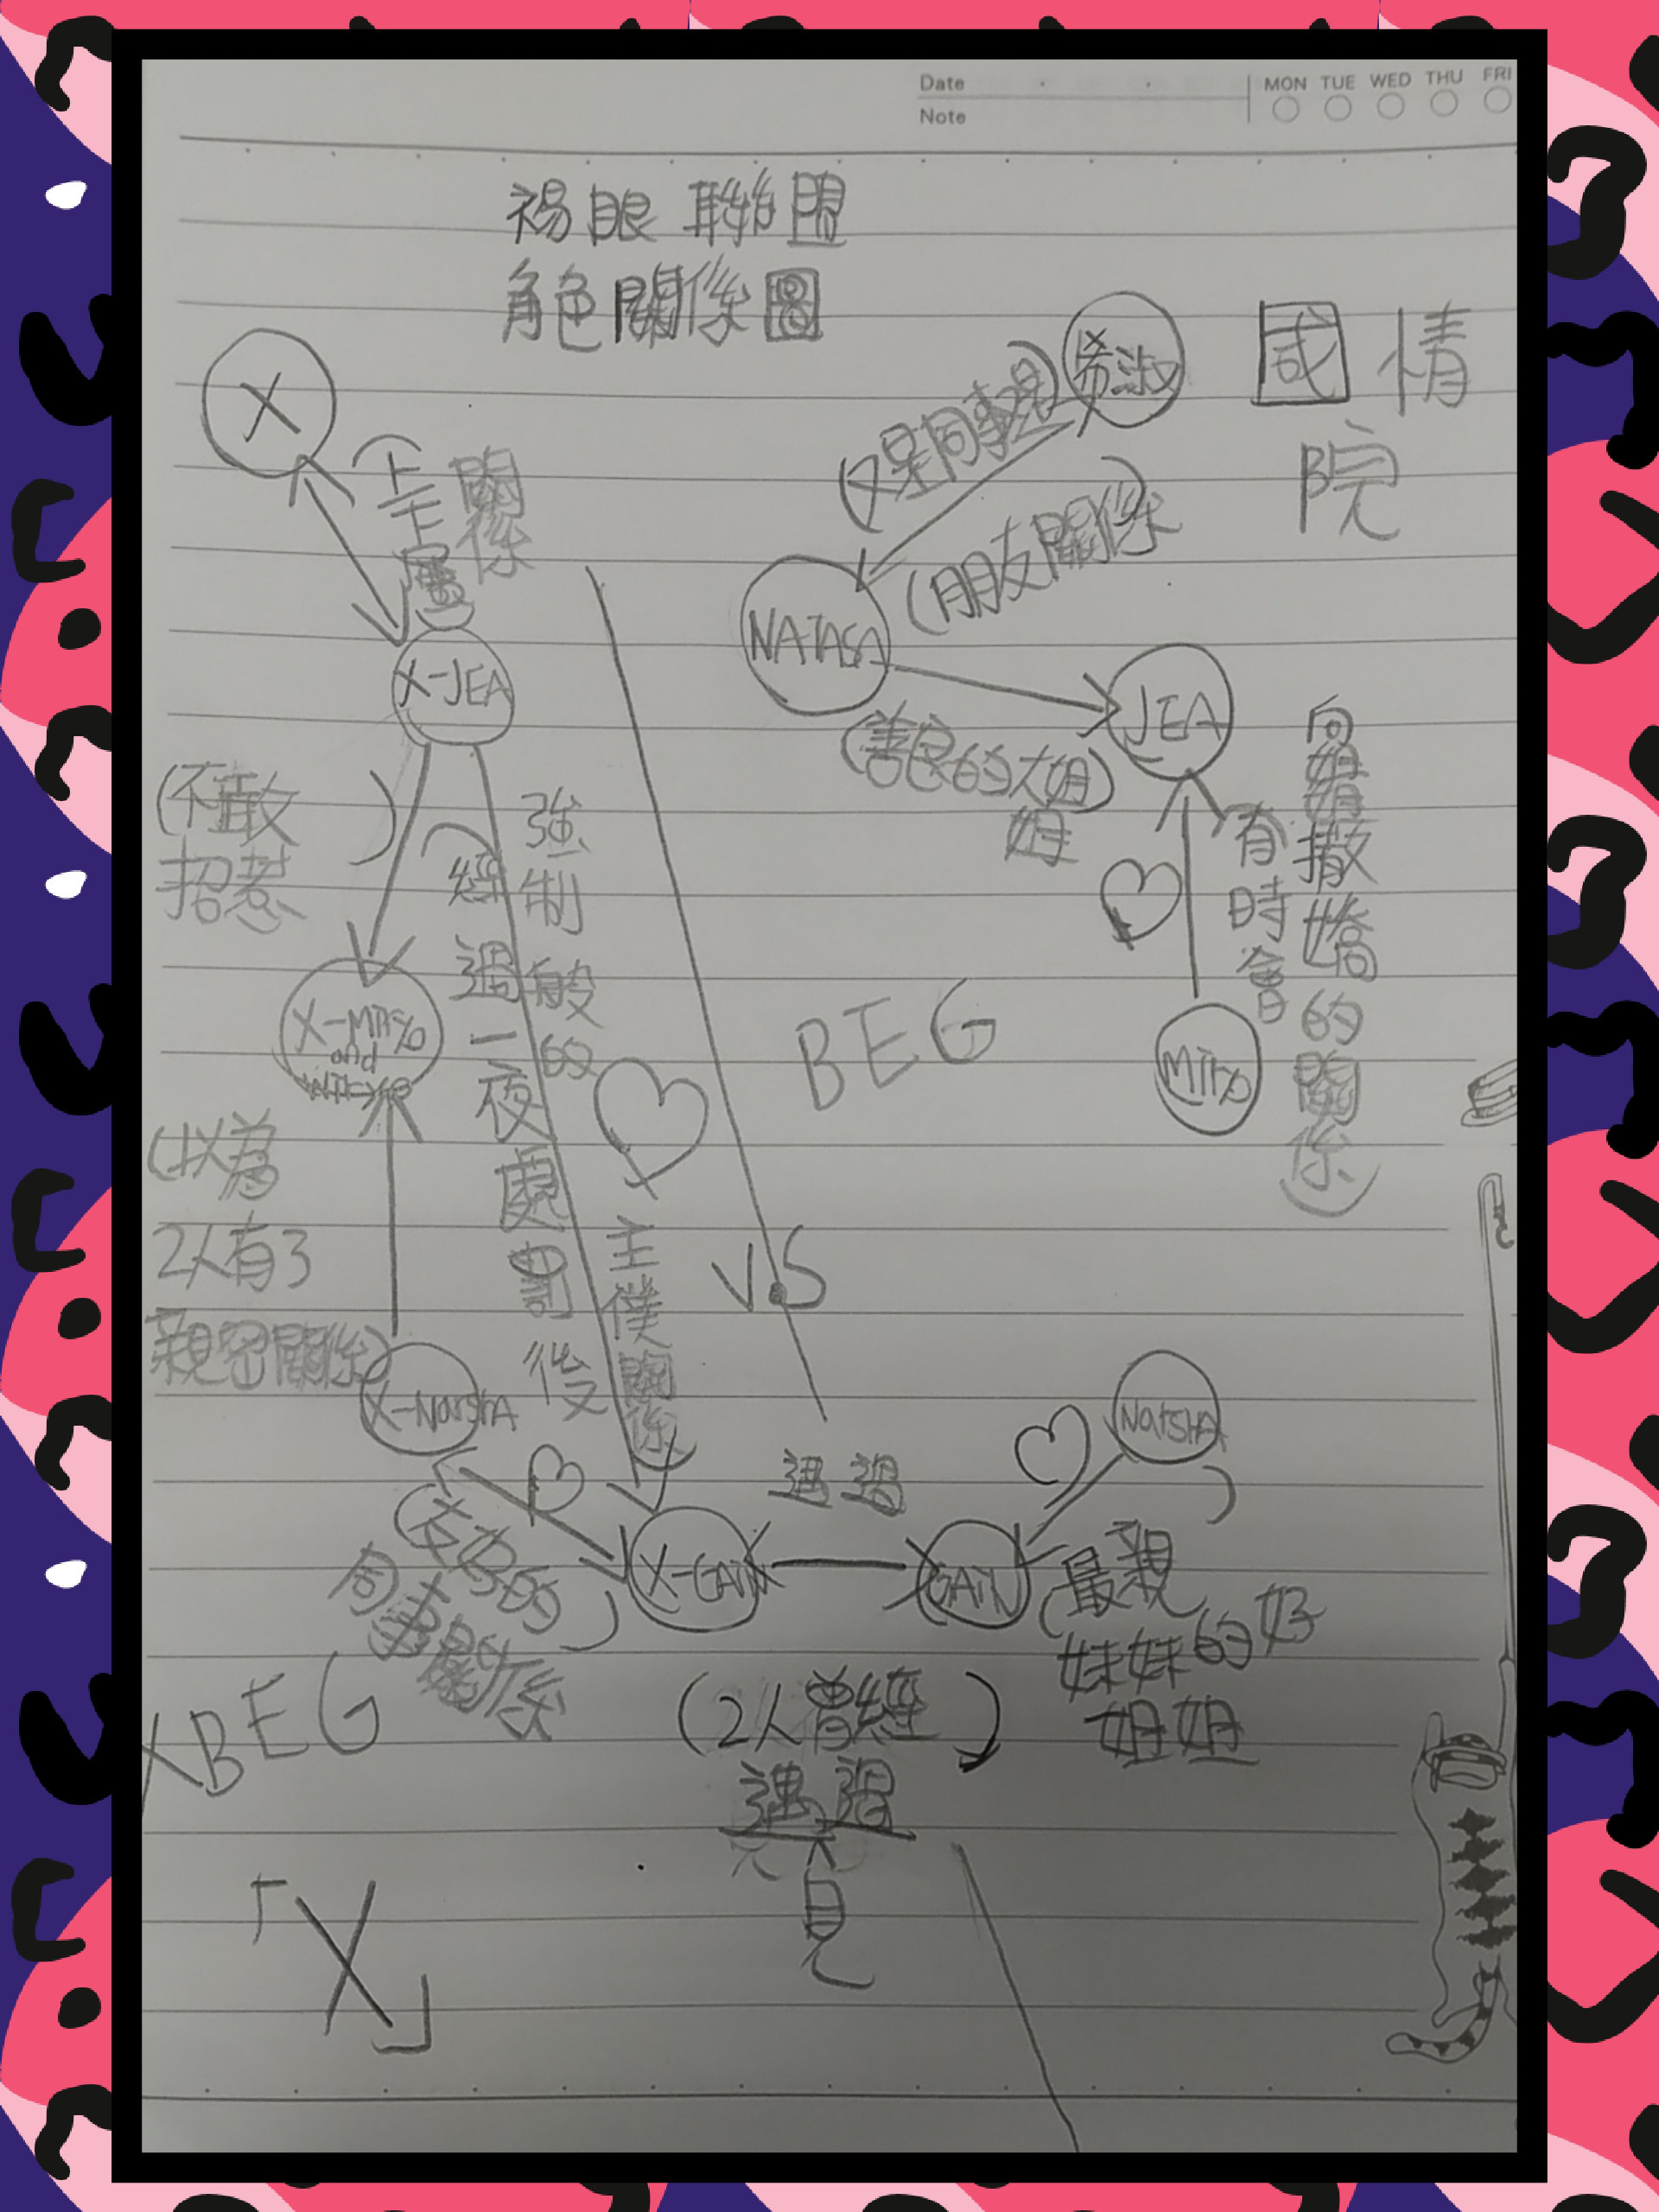 Date
Note
MON TUE WED THU FRI
褐眼聯盟
角色關係圖
X
(上下屬關係)
X-JEA
(不敢招惹)
(經過一夜處罰後
強制般的
主僕關係)
(以為
2人有3
親密關係)
X-NarshA
(友好的
同事關係)
X-GAIN
XBEG
「X」
國情
院
希淑
(又是同事又是)
(朋友關係)
NATASA
(善良的大姐姐)
JEA
(有時會
向姐姐撒嬌的關係)
BEG
VS
NarSHA
GAIN
(最親
妹妹的好
姐姐)
遇過
(2人曾經)
遇過
見